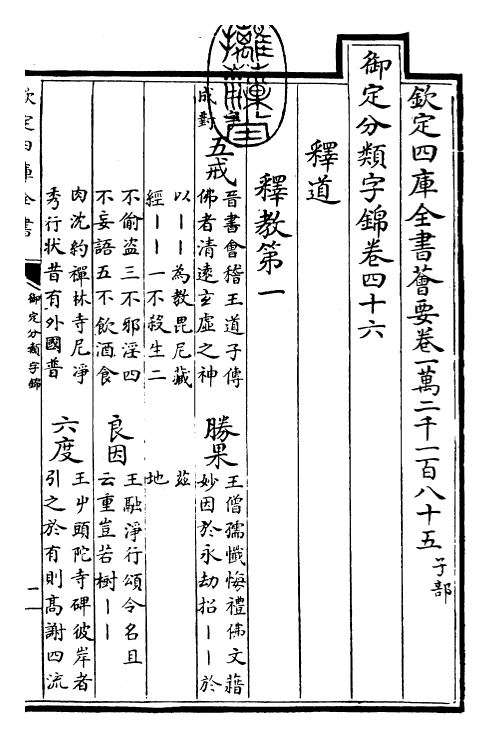 欽定四庫全書薈要卷一萬二千一百八十五 子部
御定分類字錦卷四十六
釋道
釋教第一
成對
五戒 晉書會稽王道子傳
佛者清遠玄虛之神
以丨丨為教毘尼藏
經丨丨一不殺生二
不偷盜三不邪淫四
不妄語五不飲酒食
肉沈約禪林寺尼淨
秀行狀昔有外國普
勝果 王僧孺懺悔禮佛文藉
妙因於永劫招丨丨於
茲
地
良因 王融淨行頌令名且
云重豈若樹丨丨
六度 王屮頭陀寺碑彼岸者
引之於有則高謝四流
欽定四庫全書
御定分類字錦
一